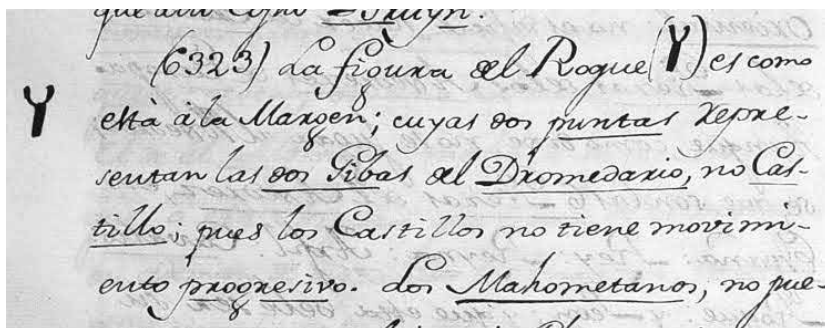 (6323) La figura del Roque (Y) es como
Y
està à la Margen; cuyas dos puntas repre-
sentan las dos Gibas del Dromedario, no Cas-
tillo; pues los Castillos no tiene movimi-
ento progresivo. Los Mahometanos, no pue-